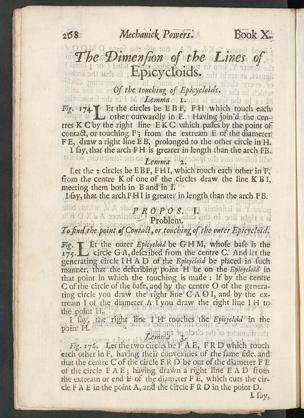 268 Mechanick Powers. Book X.
The Dimension of the Lines of
Epicycloids.
Of the touching of Epicycloids.
Lemma 1.
Fig. 174. Let the circles be EBF, FH which touch each
other outwardly in F. Having join'd the cen-
tres KC by the right line EKC which passes by the point of
contact, or touching F; from the extream E of the diameter
FE, draw a right line EB, prolonged to the other circle in H.
I say, that the arch FH is greater in length than the arch FB.
Lemma 2.
Let the 2 circles be EBF, FHI, which touch each other in F,
from the centre K of one of the circles draw the line KBI,
meeting them both in B and in I.
I say, that the arch FHI is greater in length than the arch FB.
PROPOS. I.
Problem.
To find the point of Contact, or touching of the outer Epicycloid.
Fig. Let the outer Epicycloid be GHM, whose base is the
175. circle GA, described from the centre C. And let the
generating circle IHAD of the Epicycloid be placed in such
manner, that the describing point H be on the Epicycloid in
that point in which the touching is made: If by the centre
C of the circle of the base, and by the centre O of the genera-
ting circle you draw the right line CAOI, and by the ex-
tream I of the diameter AI you draw the right line IH to
the point H.
I say, the right line IH touches the Epicycloid in the
point H.
Lemma 3.
Fig. 176. Let the two circles be FAE, FRD which touch
each other in F, having their convexities of the same side, and
that the centre C of the circle FRD be out of the diameter FE
of the circle FAE; having drawn a right line EAD from
the extream or end E of the diameter FE, which cuts the cir-
cle FAE in the point A, and the circle FRD in the point D.
I say,